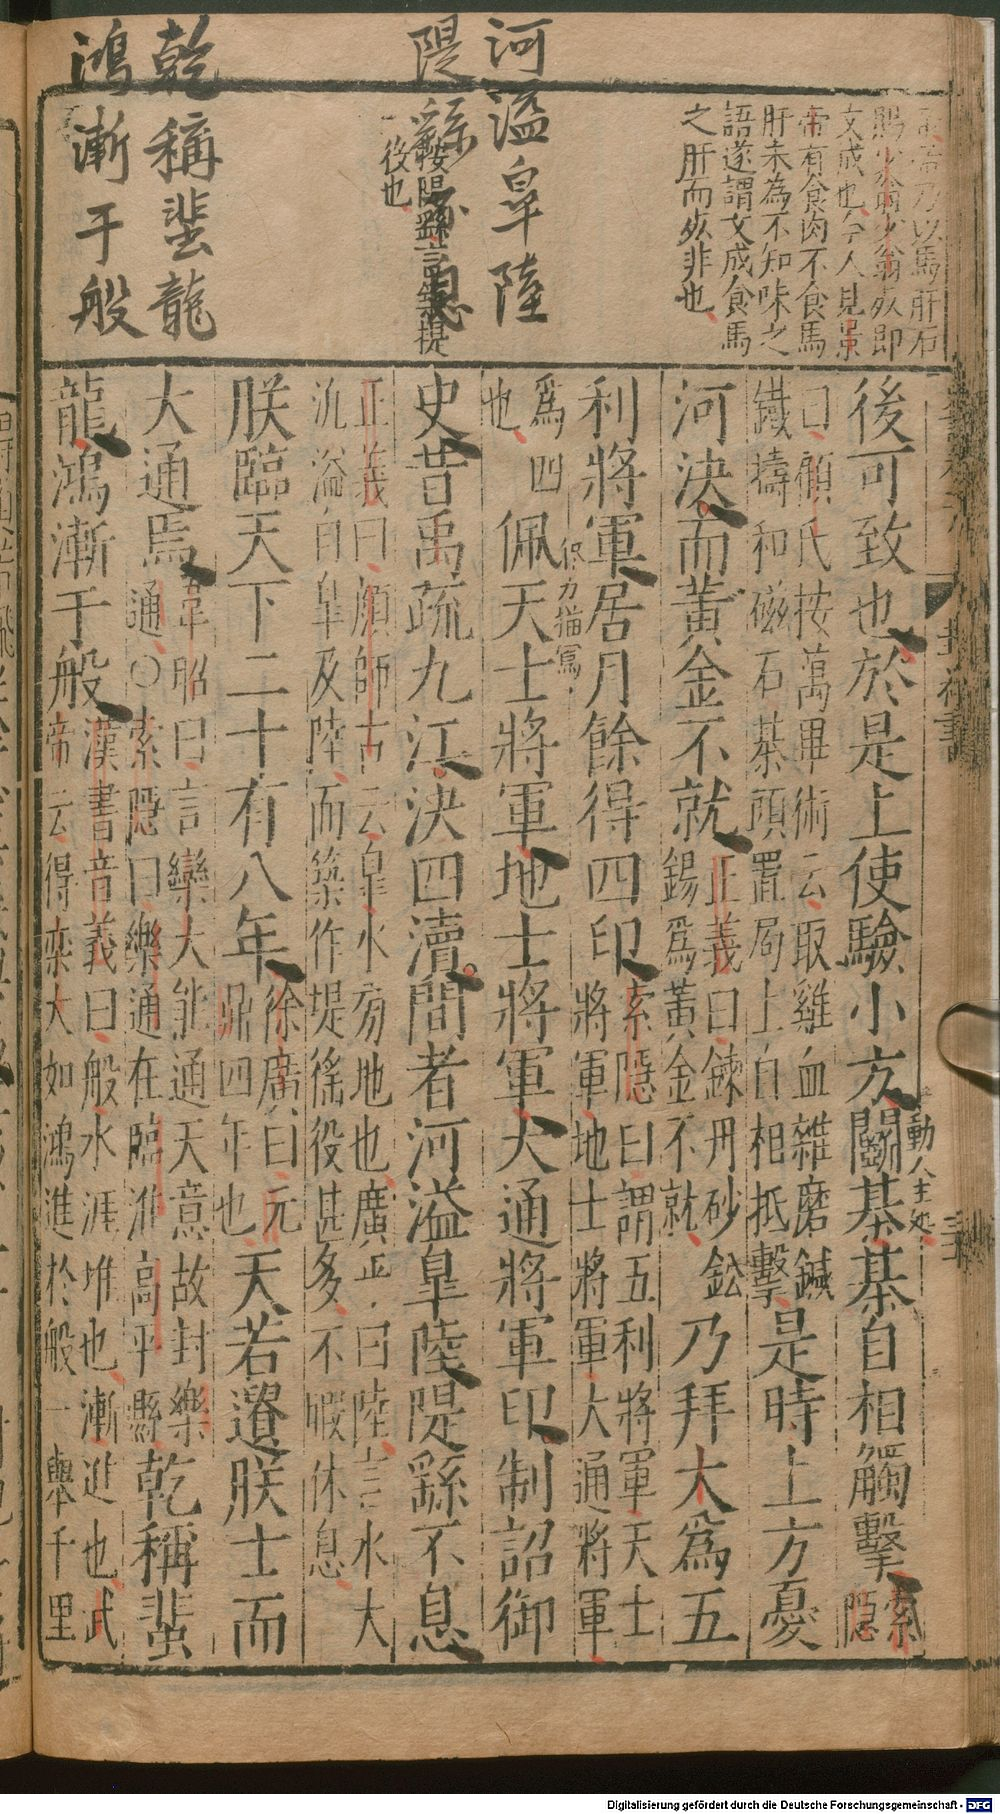 河溢皐陸
隄繇不息
乾稱蜚龍
鴻漸于般
文成也今人見景
帝有食肉不食馬
肝未為不知味之
語遂謂文成食馬
之肝而死非也
役也
後可致也於是上使驗小方闘棊棊自相觸擊索隱
曰顧氏按萬畢術云取雞血雜磨鍼
鐵擣和磁石棊頭置局上自相抵擊是時上方憂
河決而黃金不就正義曰鍊丹砂鉛
錫爲黃金不就乃拜大爲五
利將軍居月餘得四印索隱曰謂五利將軍天士
將軍地士將軍大通將軍
爲四
也佩天士將軍地士將軍大通將軍印制詔御
史昔禹疏九江決四瀆間者河溢皐陸隄繇不息
正義曰顔師古云皐水旁地也廣平曰陸言水大
汎溢自皐及陸而築作堤徭役甚多不暇休息
朕臨天下二十有八年徐廣曰元
鼎四年也天若遺朕士而
大通焉韋昭曰言欒大能通天意故封樂
通〇索隱曰樂通在臨淮高平縣乾稱蜚
龍鴻漸于般漢書音義曰般水涯堆也漸進也武
帝云得欒大如鴻進於般一舉千里
動人主処
封禪書
Digitalisierung gefördert durch die Deutsche Forschungsgemeinschaft - DFG